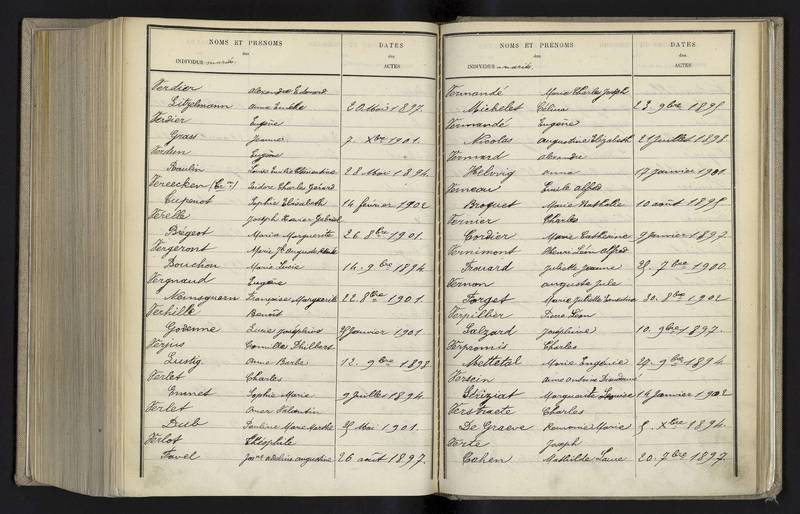 NOMS ET PRÉNOMS
des
INDIVIDUS mariés.
DATES
des
ACTES
Verdier Alexandre Edouard
Litzelmann Anna Emélie 20 Mai 1897.
Verdier Eugène
Grass Jeanne 7. Xbre 1901.
Verdun Eugène
Baulin Louise Emilie Clémentine 28 Mai 1894.
Vereecken Isidore Charles Gérard
Cupenot Sophie Elisabeth 14 février 1902
Verelle Joseph Xavier Gabriel
Brégeot Maria Marguerite 26 8bre 1901.
Vergeront Marie Jh Auguste
Bouchon Marie Lucie 14. 9bre 1894
Vergnaud Eugène
Françoise Marguerite 22. 8bre 1901.
Verhille Benoît
Godenne Lucie Joséphine Janvier 1901
Verjus Camille Philbert
Lustig. Anne Barbe 12. 9bre 1898
Verlet Charles
Emmet Sophie Marie 9 Juillet 1894.
Verlet Omer Valentin
Bub Pauline Marie Marthe Mai 1901.
Verlot Théophile
Favel Adeline Augustine 26 août 1897.
NOMS ET PRÉNOMS
des
INDIVIDUS mariés.
DATES
des
ACTES
Vermandé Marie Charles Joseph
Michelet Célina 23. 9bre 1895
Vermandé Eugène
Nicolas Augustine Elizabeth 21 Juillet 1898
Vermard Alexandre
Helwig Anna 17 Janvier 1901.
Verneau Emile Alfred
Broquet Marie Nathalie 10 août 1895
Vernier Charles
Cordier Marie Catherine 9 Janvier 1897.
Vernimont Henri Léon Alfred
Frouard Juliette Jeanne 7bre 1900.
Vernon Auguste Jule
Forget Marie Juliette 30. 8bre 1902
Verpillier Pierre Léon
Salzard Joséphine 10. 9bre 1897.
Verpromis Charles
Mettetal Marie Eugénie 9bre 1894.
Versein
Striziat Marguerite Louise 14 Janvier 1902
Verstraete Charles
De Graeve Romanie Marie 5. Xbre 1894.
Verte Joseph
Cohen Mathilde Laure 20. 7bre 1897.